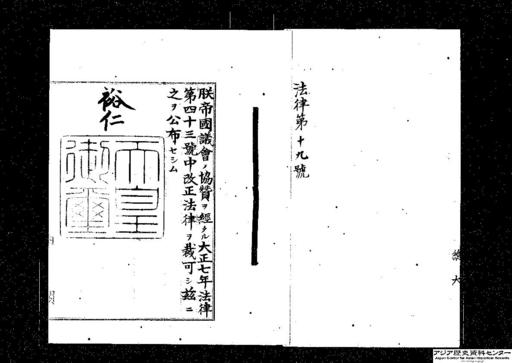 法律第十九號
朕帝國議會ノ協贊ヲ經タル大正七年法律
第四十三號中改正法律ヲ裁可シ茲ニ
之ヲ公布セシム
裕仁
天皇御璽
アジア歴史資料センター
Japan Center for Asian Historical Records